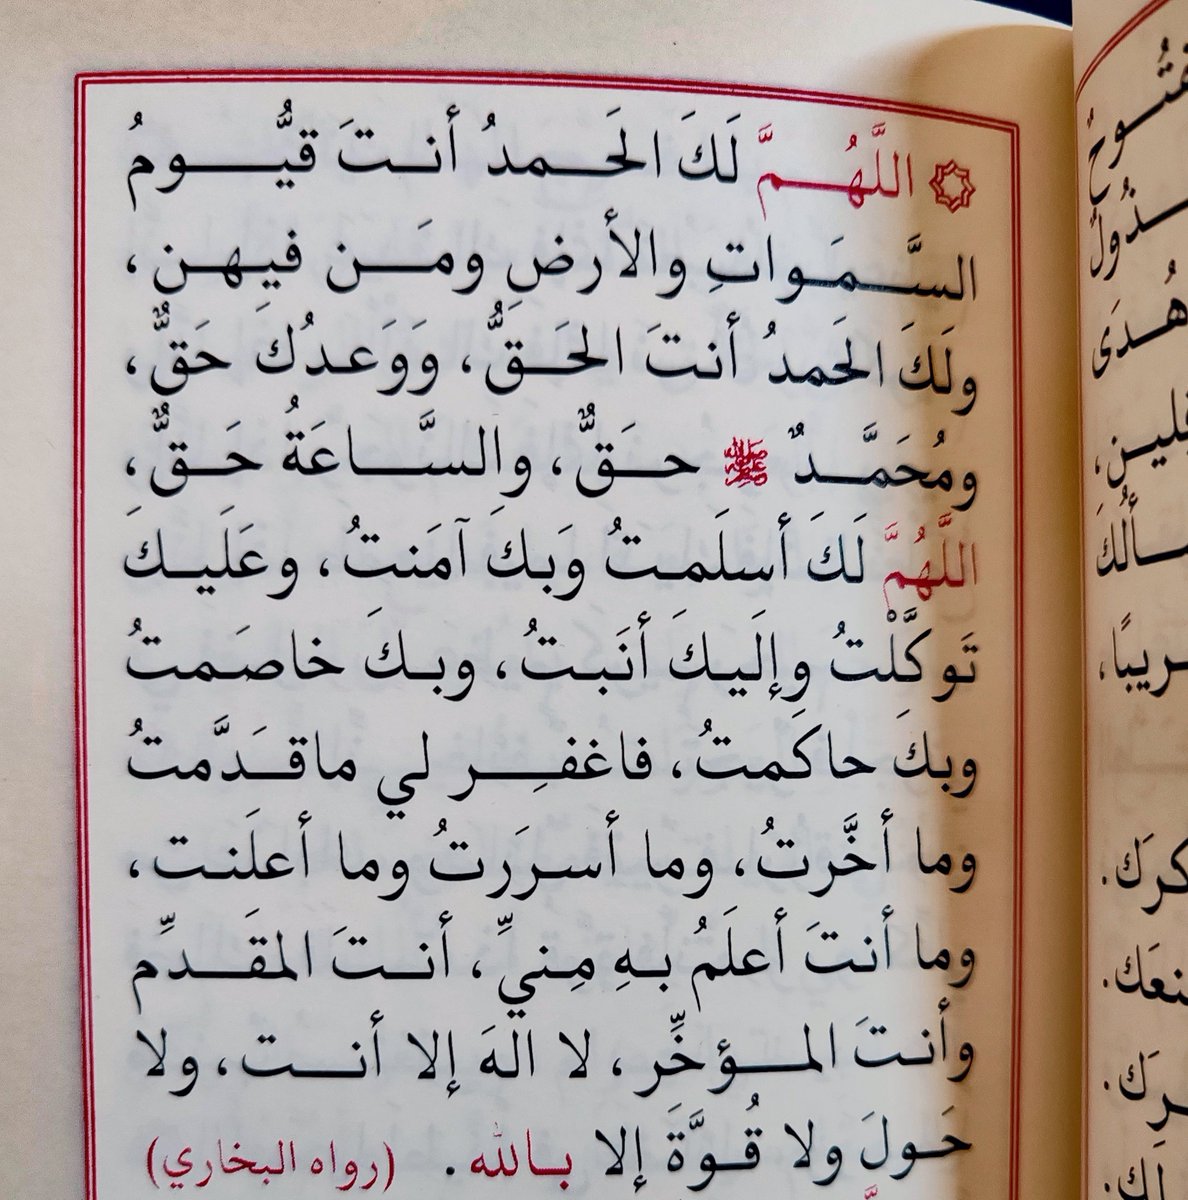 اللَّهُمَّ لَكَ الحَمدُ أنتَ قيُّومُ
السَّمَواتِ والأرضِ ومَن فيهن،
ولَكَ الحَمدُ أنتَ الحَقُّ، ووَعدُكَ حَقٌّ،
ومُحَمَّدٌ ﷺ حَقٌّ، والسَّاعَةُ حَقٌّ،
اللَّهُمَّ لَكَ أسلَمتُ وَبِكَ آمَنتُ، وعَلَيكَ
تَوكَّلْتُ وإلَيكَ أنَبتُ، وبِكَ خاصَمتُ
وبِكَ حاكَمتُ، فاغفِر لي ماقَدَّمتُ
وما أخَّرتُ، وما أسرَرتُ وما أعلَنت،
وما أنتَ أعلَمُ بهِ مِنيِّ، أنتَ المقَدِّم
وأنتَ المؤخِّر، لا الهَ إلا أنت، ولا
حَولَ ولا قُوَّةَ إلا بالله. (رواه البخاري)
هُدَى
كرَك.
لِك.